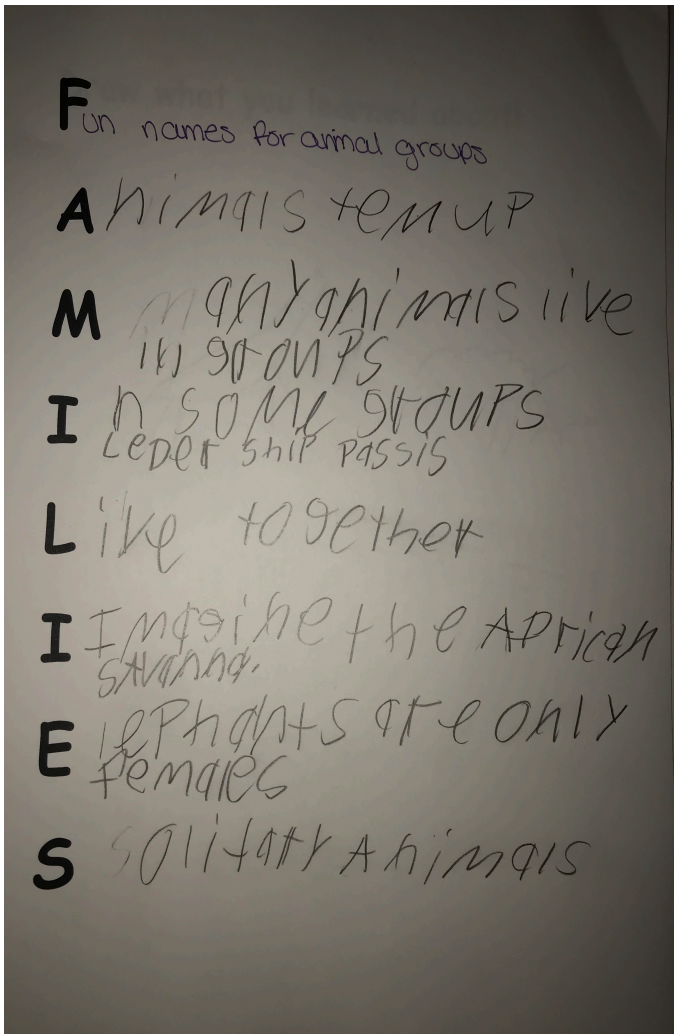 Fun names for animal groups
Animals temup
M many animals live
in groups
In some groups
Leder ship passis
Live together
I Imagine the African
savanna.
Elephants are only
females
S solitary Animals